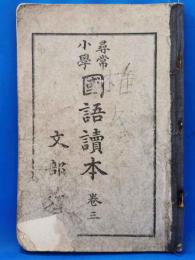 尋常
小學
國語讀本 卷三
文部